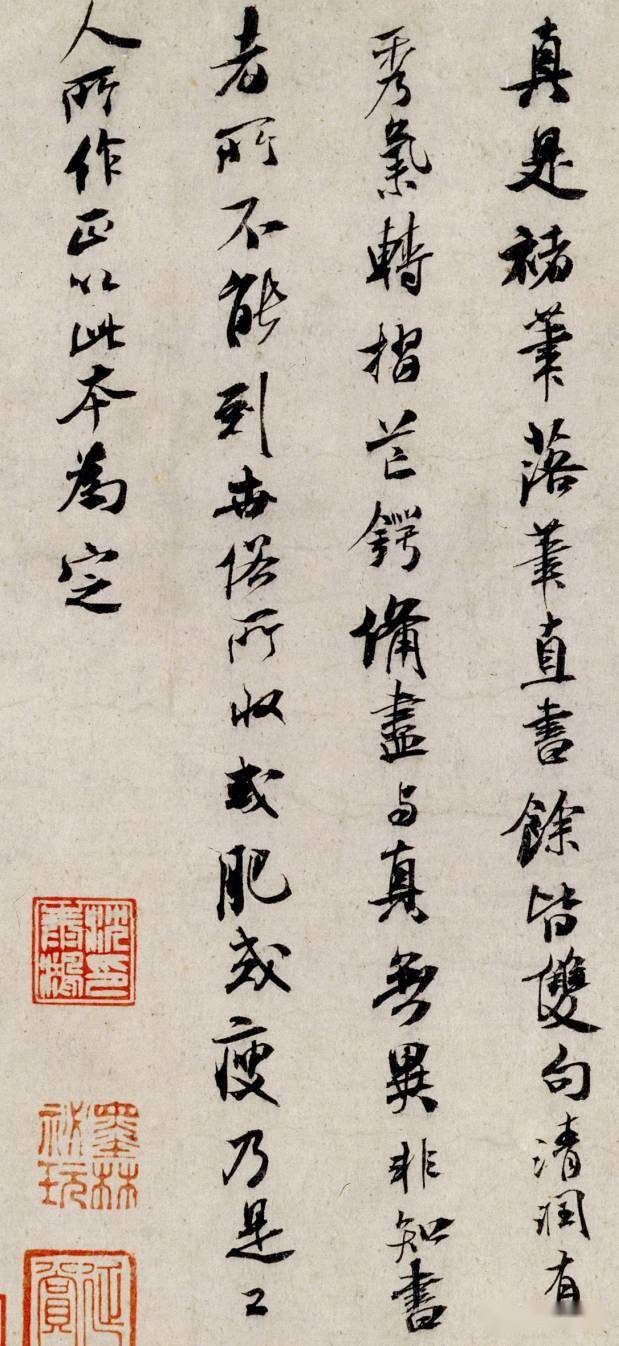 真是褚筆落筆直書餘皆雙句清潤有
秀氣轉摺芒鍔備盡与真無異非知書
者所不能到世俗所收或肥或瘦乃是工
人所作正以此本為定
墨林
祕玩